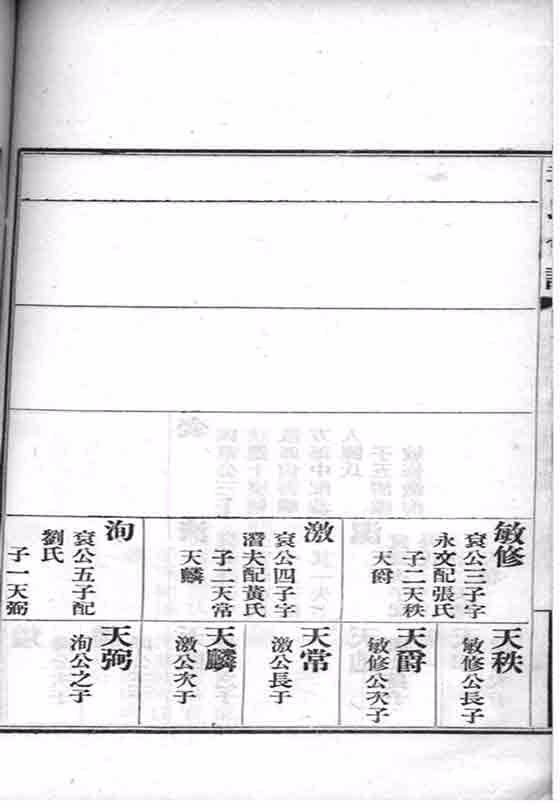 敏修
袞公三子字
永文配張氏
子二天秩
天爵
激
袞公四子字
潛夫配黃氏
子二天常
天麟
洵
袞公五子配
劉氏
子一天弼
天秩
敏修公長子
天爵
敏修公次子
天常
激公長子
天麟
激公次子
天弼
洵公之子